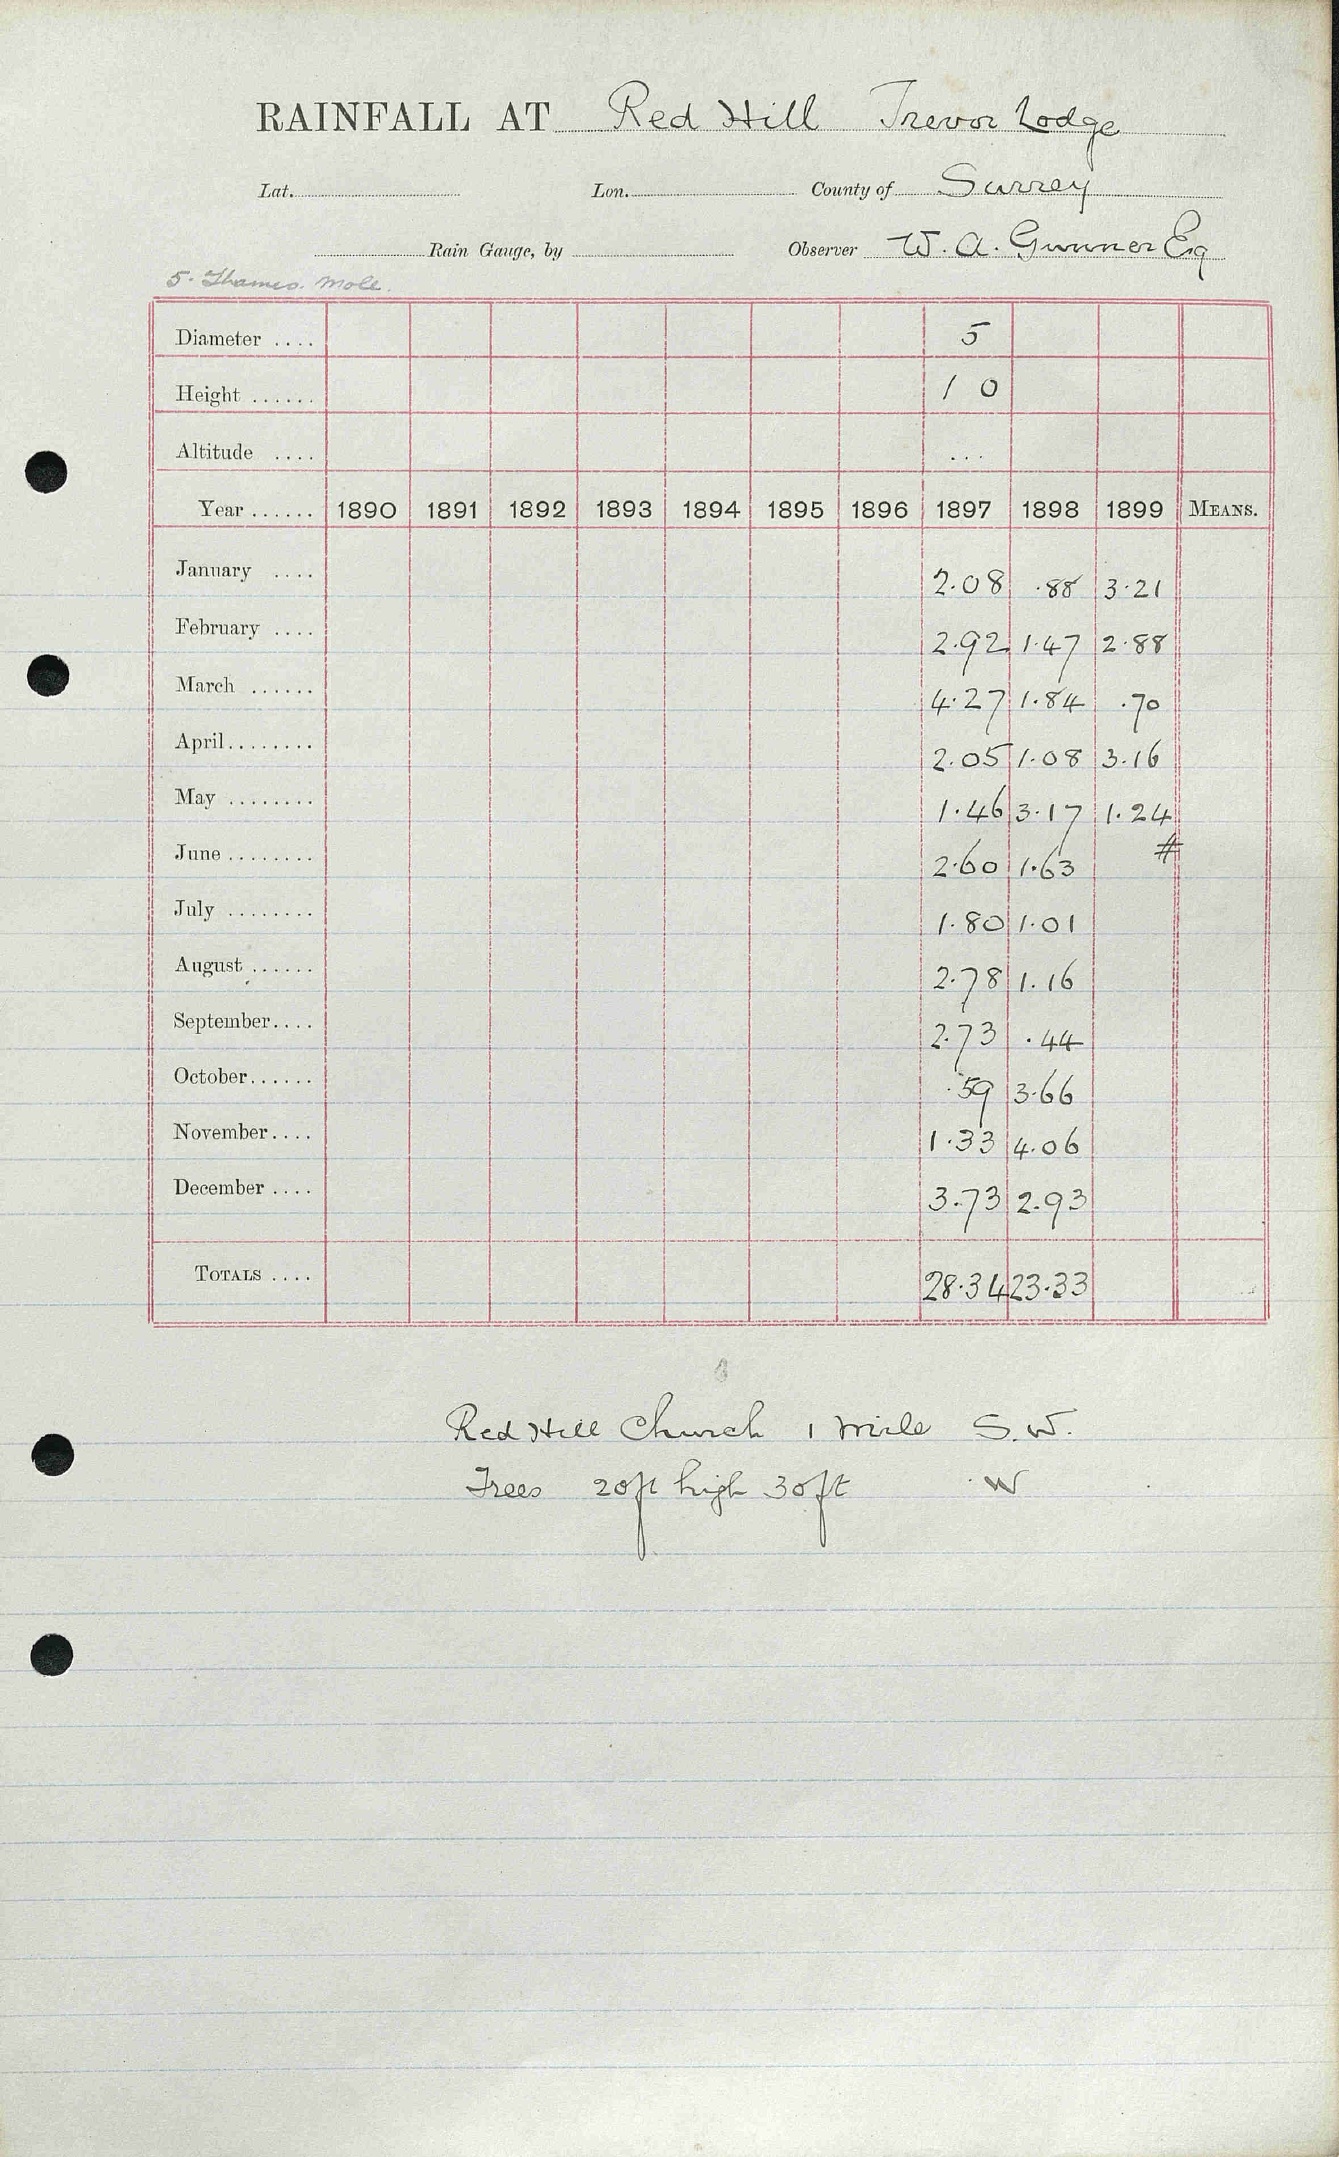 RAINFALL AT Red Hill Trevor Lodge
Lat. Lon. County of Surrey
Rain Gauge, by Observer W. A. Gunner Esq
5. Thames. Mole.
Diameter .... 5
Height ...... 1 0
Altitude .... ...
Year ...... 1890 1891 1892 1893 1894 1895 1896 1897 1898 1899 MEANS.
January .... 2.08 .88 3.21
February .... 2.92 1.47 2.88
March ...... 4.27 1.84 .70
April........ 2.05 1.08 3.16
May ........ 1.46 3.17 1.24
June ........ 2.60 1.63 #
July ........ 1.80 1.01
August ...... 2.78 1.16
September.... 2.73 .44
October...... .59 3.66
November.... 1.33 4.06
December .... 3.73 2.93
TOTALS .... 28.34 23.33
Red Hill Church 1 mile S.W.
Trees 20ft high 30ft W